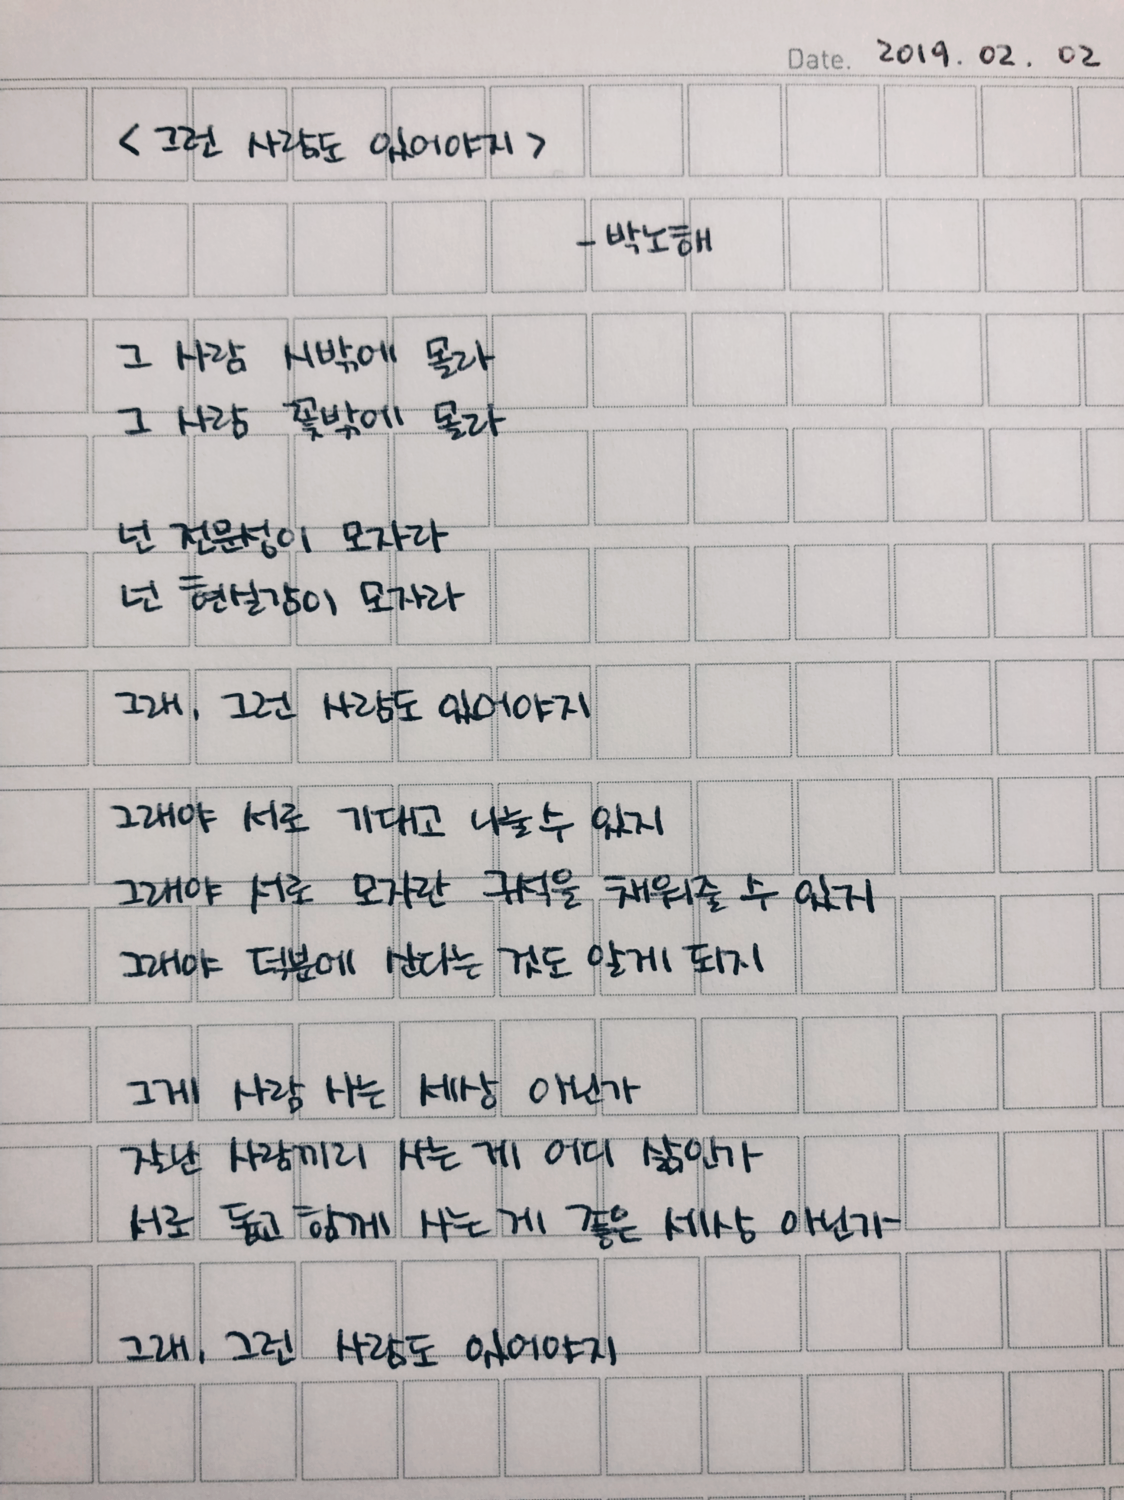 Date. 2019. 02. 02
< 그런 사람도 있어야지 >
- 박노해
그 사람 시밖에 몰라
그 사람 꽃밖에 몰라
넌 전문성이 모자라
넌 현실감이 모자라
그래, 그런 사람도 있어야지
그래야 서로 기대고 나눌 수 있지
그래야 서로 모자란 구석을 채워줄 수 있지
그래야 덕분에 산다는 것도 알게 되지
그게 사람 사는 세상 아닌가
잘난 사람끼리 사는 게 어디 삶인가
서로 돕고 함께 사는 게 좋은 세상 아닌가
그래, 그런 사람도 있어야지